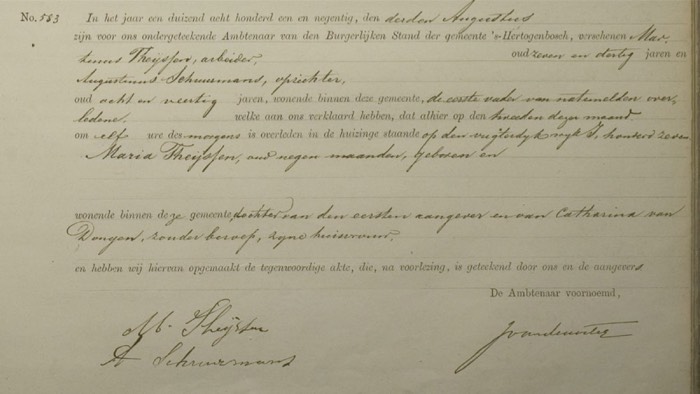 No. 583 In het jaar een duizend acht honderd een en negentig, den derden Augustus
zijn voor ons ondergeteekende Ambtenaar van den Burgerlijken Stand der gemeente 's-Hertogenbosch, verschenen Mar-
tinus Theijssen, arbeider, oud zeven en dertig jaren en
Augustinus Schuurmans, oprichter,
oud acht en veertig jaren, wonende binnen deze gemeente, de eerste vader van natemelden over-
ledene, welke aan ons verklaard hebben, dat alhier op den tweeden dezer maand
om elf ure des morgens is overleden in de huizinge staande op den Vugterdyk wyk I, honderd zeven
Maria Theijssen, oud negen maanden, geboren en
wonende binnen deze gemeente, dochter van den eersten aangever en van Catharina van
Dongen, zonder beroep, zyne huisvrouw,
en hebben wij hiervan opgemaakt de tegenwoordige akte, die, na voorlezing, is geteekend door ons en de aangevers
De Ambtenaar voornoemd,
M. Theijssen
A Schuurmans